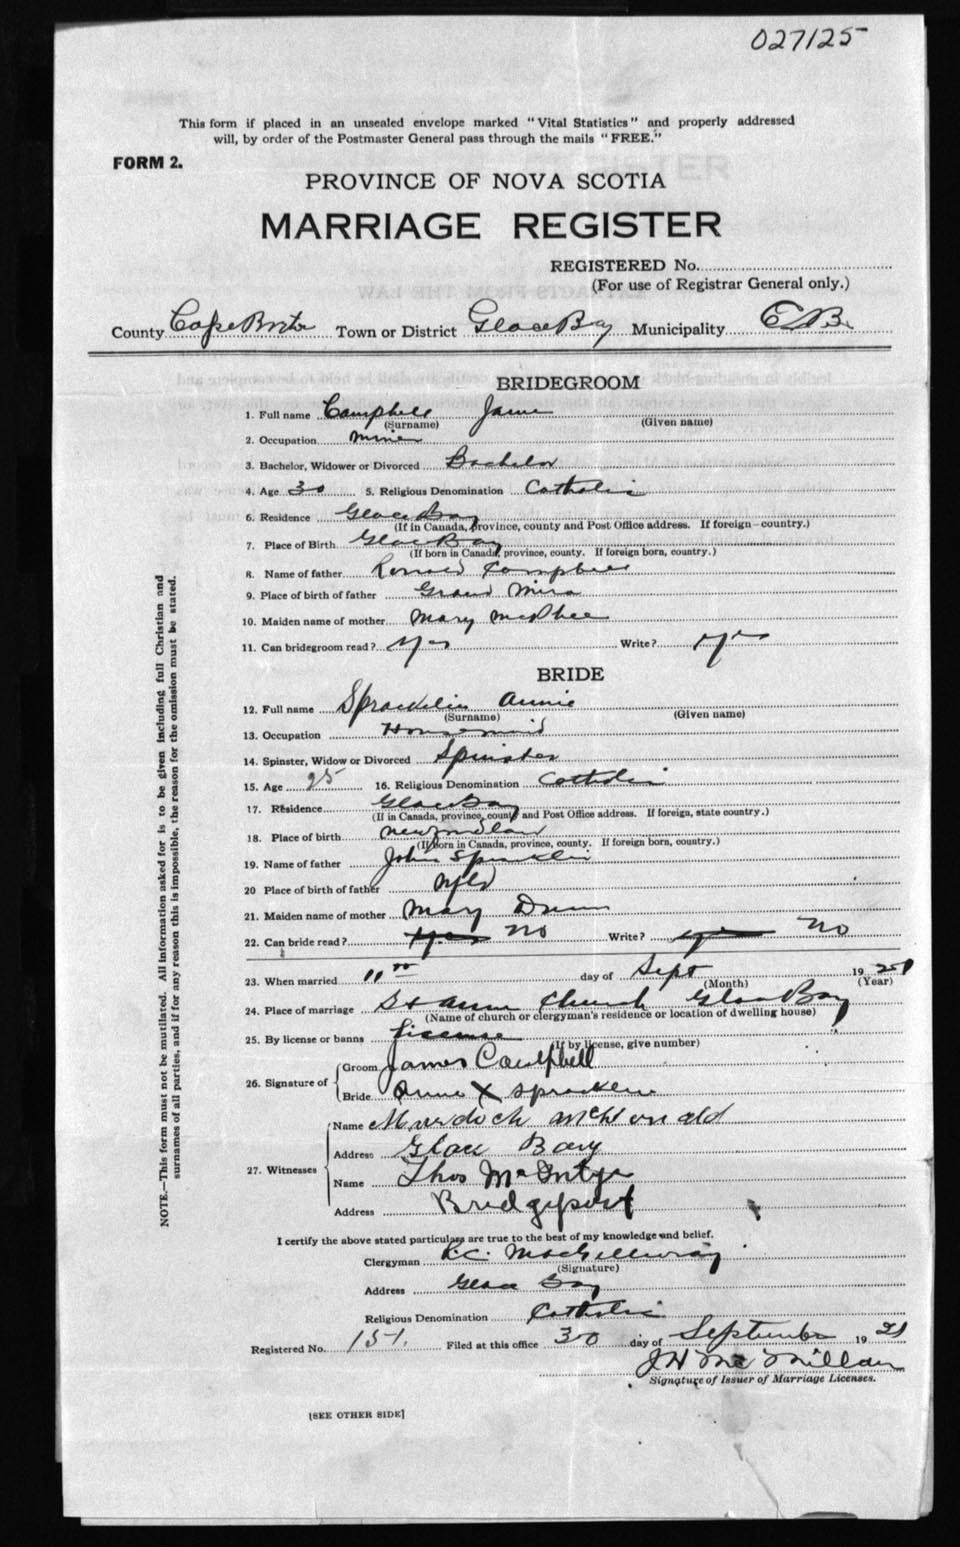 027125
This form if placed in an unsealed envelope marked "Vital Statistics" and properly addressed
will, by order of the Postmaster General pass through the mails "FREE."
FORM 2.
PROVINCE OF NOVA SCOTIA
MARRIAGE REGISTER
REGISTERED No.
(For use of Registrar General only.)
County Cape Breton Town or District Glace Bay Municipality C.B.
BRIDEGROOM
1. Full name Campbell James
(Surname) (Given name)
2. Occupation miner
3. Bachelor, Widower or Divorced Bachelor
4. Age 30 5. Religious Denomination Catholic
6. Residence Glace Bay
(If in Canada, province, county and Post Office address. If foreign-country.)
7. Place of Birth Glace Bay
(If born in Canada, province, county. If foreign born, country.)
8. Name of father Ronald Campbell
9. Place of birth of father Grand Mira
10. Maiden name of mother Mary McPhee
11. Can bridegroom read? Yes Write? Yes
BRIDE
12. Full name Spracklin Annie
(Surname) (Given name)
13. Occupation Housemaid
14. Spinster, Widow or Divorced Spinster
15. Age 25 16. Religious Denomination Catholic
17. Residence Glace Bay
(If in Canada, province, county and Post Office address. If foreign, state country.)
18. Place of birth Newfoundland
(If born in Canada, province, county. If foreign born, country.)
19. Name of father John Spracklin
20 Place of birth of father Nfld
21. Maiden name of mother Mary
22. Can bride read? Yes No Write? Yes No
23. When married 11th day of Sept 1921
(Month) (Year)
24. Place of marriage St Anns Church Glace Bay
(Name of church or clergyman's residence or location of dwelling house)
25. By license or banns License
(If by license, give number)
26. Signature of Groom James Campbell
Bride Annie X Spracklin
27. Witnesses Name Murdoch McDonald
Address Glace Bay
Name Thos McIntyre
Address Bridgeport
I certify the above stated particulars are true to the best of my knowledge and belief.
Clergyman R.C. MacGillivray
(Signature)
Address Glace Bay
Religious Denomination Catholic
Registered No. 151. Filed at this office 30 day of September 1921
J H McMillan
Signature of Issuer of Marriage Licenses.
[SEE OTHER SIDE]
NOTE.—This form must not be mutilated. All information asked for is to be given including full Christian and
surnames of all parties, and if for any reason this is impossible, the reason for the omission must be stated.